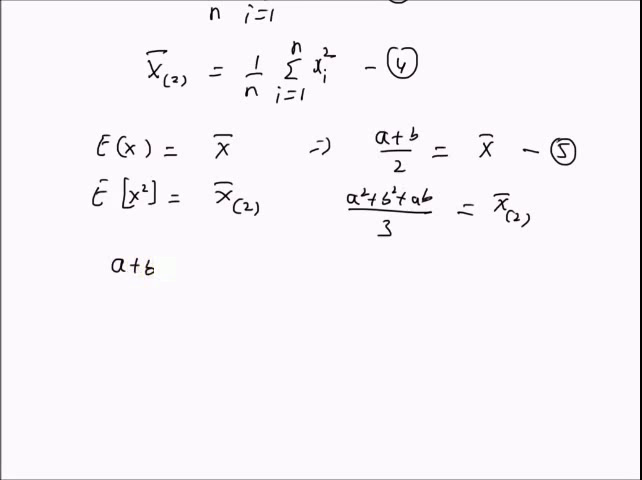 n i=1
X̄(2) = 1/n Σ(i=1 to n) x_i² – ④
E(x) = x̄ ⇒ (a+b)/2 = x̄ – ⑤
E[x²] = x̄(2) (a²+b²+ab)/3 = x̄(2)
a+b